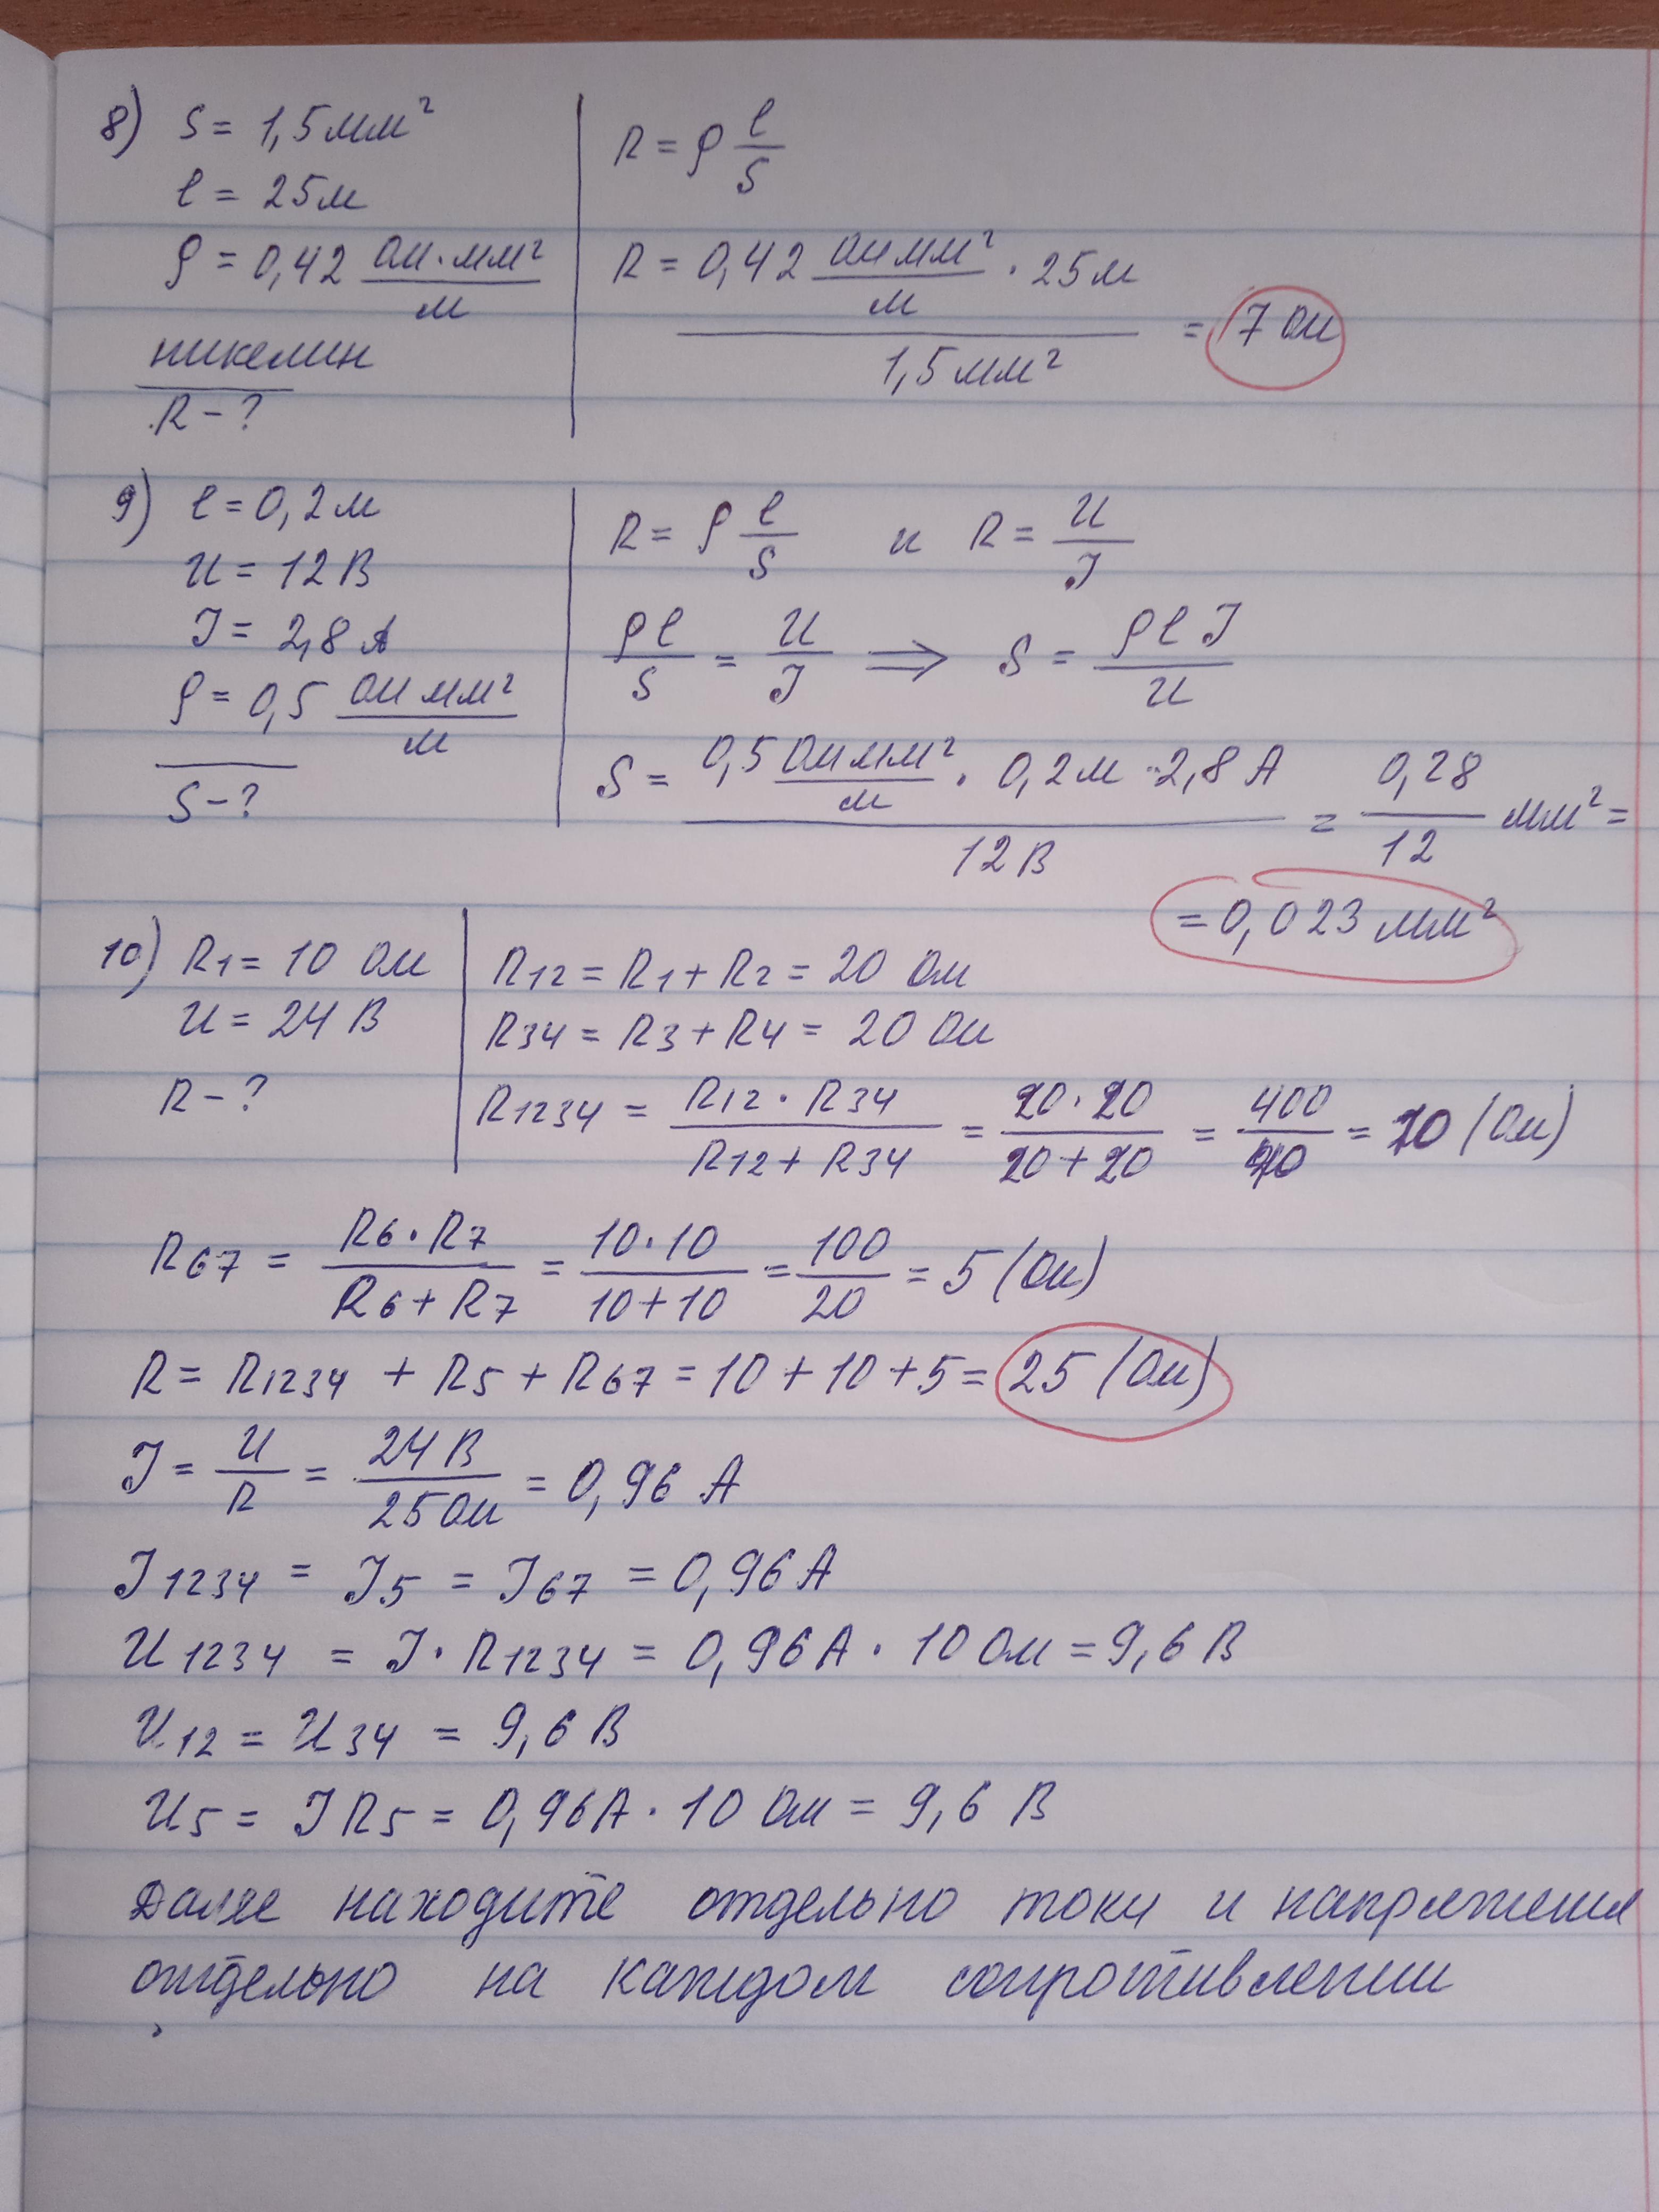 8) S = 1,5 мм²
l = 25 м
ρ = 0,42 Ом·мм²/м
никелин
R - ?
R = ρ l/S
R = 0,42 Ом мм²/м · 25 м / 1,5 мм² = 7 Ом
9) l = 0,2 м
U = 12 В
J = 2,8 А
ρ = 0,5 Ом мм²/м
S - ?
R = ρ l/S и R = U/J
ρl/S = U/J ⟹ S = ρlJ/U
S = 0,5 Ом мм²/м · 0,2 м · 2,8 А / 12 В = 0,28/12 мм² =
= 0,023 мм²
10) R1 = 10 Ом
U = 24 В
R - ?
R12 = R1 + R2 = 20 Ом
R34 = R3 + R4 = 20 Ом
R1234 = R12 · R34 / R12 + R34 = 20 · 20 / 20 + 20 = 400/40 = 10 (Ом)
R67 = R6 · R7 / R6 + R7 = 10 · 10 / 10 + 10 = 100/20 = 5 (Ом)
R = R1234 + R5 + R67 = 10 + 10 + 5 = 25 (Ом)
J = U/R = 24 В / 25 Ом = 0,96 А
J1234 = J5 = J67 = 0,96 А
U1234 = J · R1234 = 0,96 А · 10 Ом = 9,6 В
U12 = U34 = 9,6 В
U5 = J R5 = 0,96 А · 10 Ом = 9,6 В
Далее находите отдельно токи и напряжения
отдельно на каждом сопротивлении